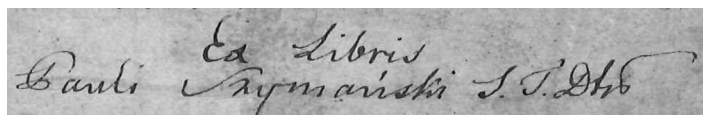 Ex Libris
Pauli Szymański S. T. Dris